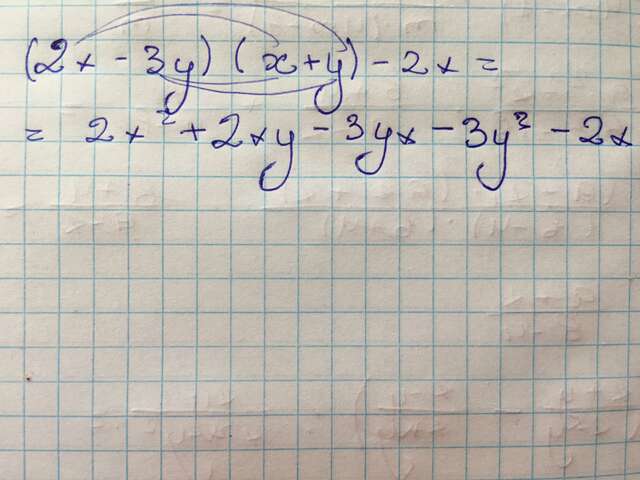 (2x - 3y) (x + y) - 2x =
= 2x² + 2xy - 3yx - 3y³ - 2x